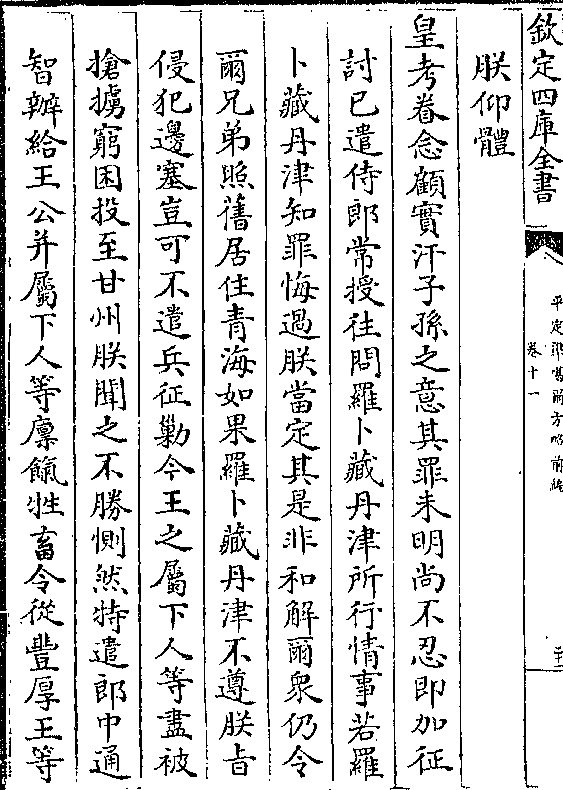 欽定四庫全書
平定準噶爾方略前編
卷十一
朕仰體
皇考眷念顧實汗子孫之意其罪未明尚不忍即加征
討已遣侍郎常授往問羅卜藏丹津所行情事若羅
卜藏丹津知罪悔過朕當定其是非和解爾衆仍令
爾兄弟照舊居住青海如果羅卜藏丹津不遵朕旨
侵犯邊塞豈可不遣兵征勦今王之屬下人等盡被
搶擄窮困投至甘州朕聞之不勝惻然特遣郎中通
智辦給王公并屬下人等廪餼牲畜令從豐厚王等